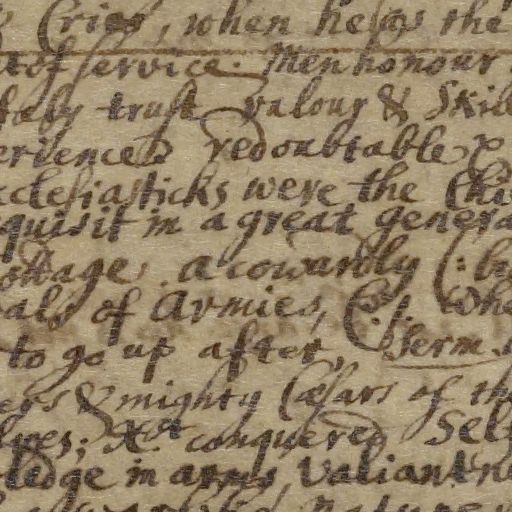 Cries, when he is the
of service. Men honour
trust valour & Skill
redoubtable &
clesiasticks were the Chi
quisit in a great genera
ottage. a cowardly (: b
als of Armies, Whe
to go up after, Serm.
ers & mighty Cæsars of th
lves; Xst conquered Sel
ledge in arms, Valiantn